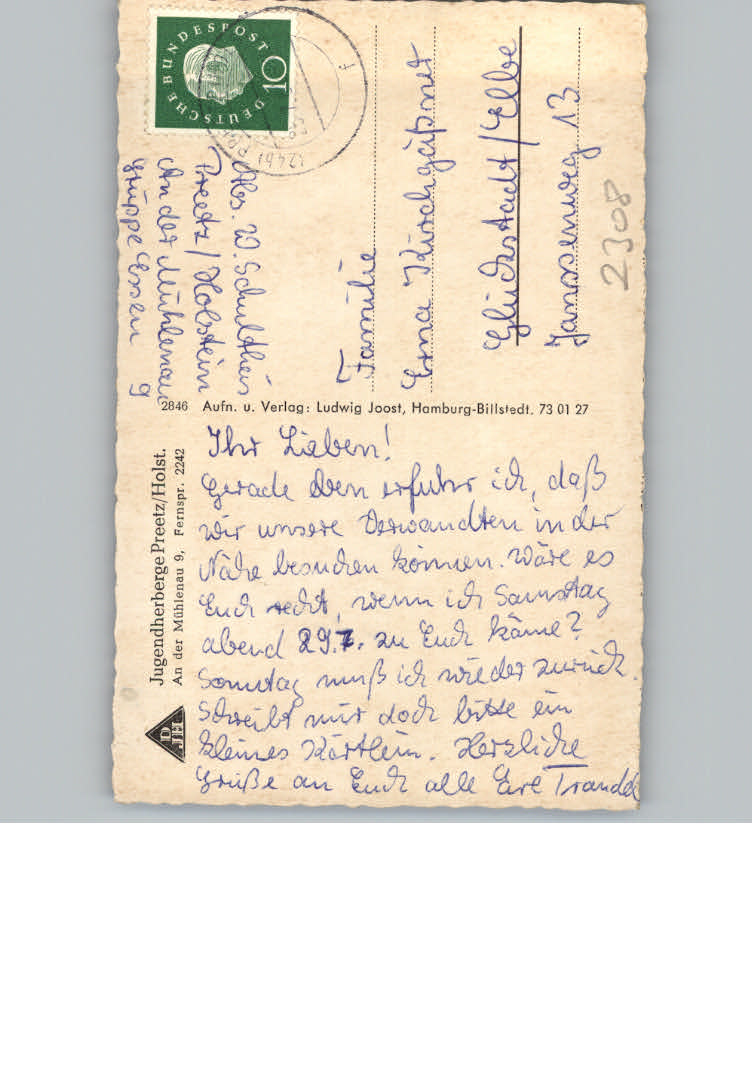 DEUTSCHE BUNDESPOST
10
Abs. W. Schultheis
Preetz/Holstein
An der Mühlenau 9
Gruppe Essen
Familie
Erna Kirchgäßner
Glückstadt/Elbe
Janssenweg 13
2308
2846 Aufn. u. Verlag: Ludwig Joost, Hamburg-Billstedt. 73 01 27
Jugendherberge Preetz/Holst.
An der Mühlenau 9, Fernspr. 2242
DJH
Ihr Lieben!
Gerade eben erfuhr ich, daß
wir unsere Verwandten in der
Nähe besuchen können. Wäre es
Euch recht, wenn ich Samstag
abend 29.7. zu Euch käme?
Sonntag muß ich wieder zurück.
Schreibt mir doch bitte ein
kleines Kärtlein. Herzliche
Grüße an Euch alle Eure Traudel